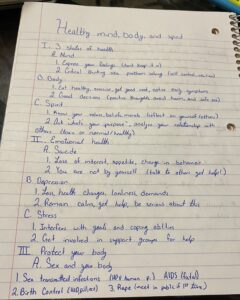 Healthy mind, body, and spirit
I. 3 states of health
A. Mind
1. Express your feelings (don't keep it in)
2. Critical thinking and problem solving (self control, etc.)
B. Body
1. Eat healthy, exercise, get good rest, notice early symptoms
2. Good decisions (positive thoughts, avoid harm, and safe sex)
C. Spirit
1. Know your values, beliefs, morals (reflect on yourself/others)
2. Ask what's your purpose, analyze your relationship with
others (know or normal/healthy)
II. Emotional health
A. Suicide
1. Loss of interest, appetite, change in behavior
2. You are not by yourself (talk to others, get help!)
B. Depression
1. Less health changes, loneliness demands
2. Remain calm, get help, be serious about this
C. Stress
1. Interferes with goals and coping abilities
2. Get involved in support groups for help
III. Protect your body
A. Sex and your body
1. Sex transmitted infections (HPV human p.) AIDS (fatal)
2. Birth Control (IUD/pill/etc) 3. Rape (meet in public 1st time)